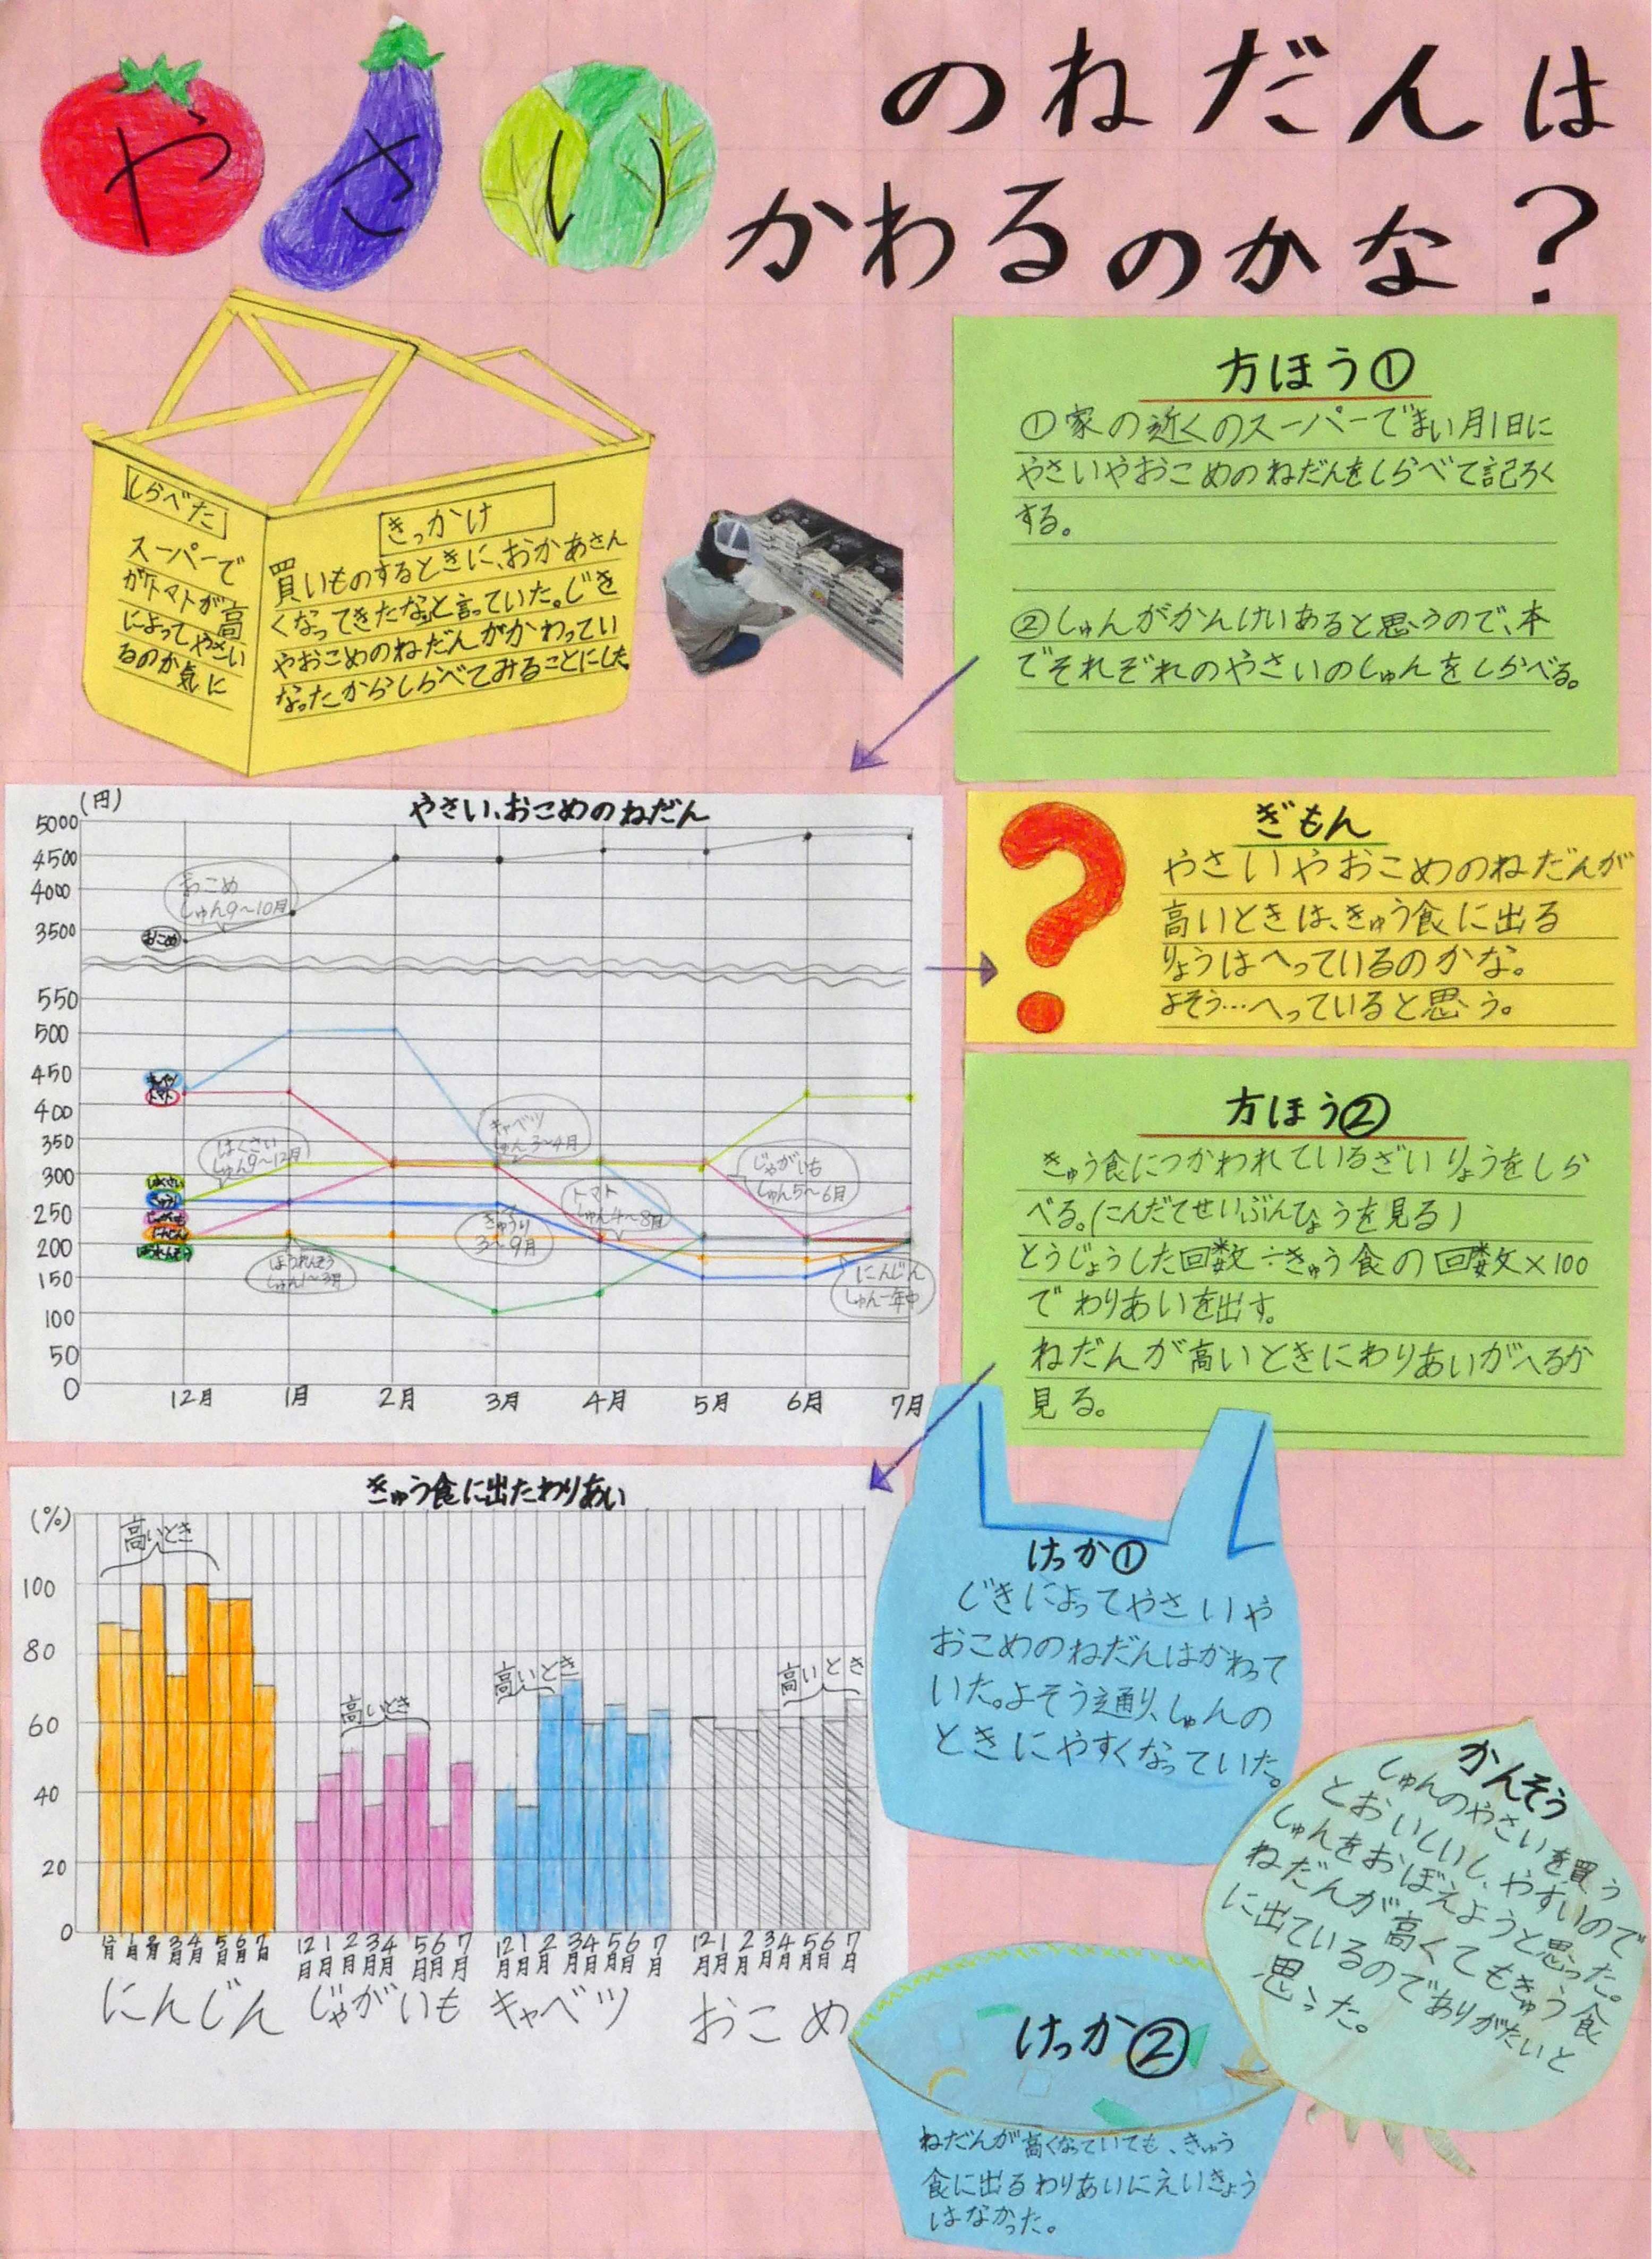 やさい
のねだんは
かわるのかな？
しらべた
きっかけ
スーパーで
買いものするときに、おかあさん
がトマトが高
くなってきたなと言っていた。じき
によってやさい
やおこめのねだんがかわってい
るのか気に
なったからしらべてみることにした。
方ほう①
①家の近くのスーパーでまい月1日に
やさいやおこめのねだんをしらべて記ろく
する。
②しゅんがかんけいあると思うので、本
でそれぞれのやさいのしゅんをしらべる。
やさい、おこめのねだん
(円)
5000
4500
4000
3500
550
500
450
400
350
300
250
200
150
100
50
0
おこめ
しゅん9〜10月
おこめ
キャベツ
トマト
はくさい
きゅうり
じゃがいも
にんじん
ほうれんそう
はくさい
しゅん9〜12月
キャベツ
しゅん3〜4月
じゃがいも
しゅん5〜6月
トマト
しゅん4〜8月
きゅうり
3〜9月
ほうれんそう
しゅん1〜3月
にんじん
しゅん一年中
12月 1月 2月 3月 4月 5月 6月 7月
ぎもん
やさいやおこめのねだんが
高いときは、きゅう食に出る
りょうはへっているのかな。
よそう…へっていると思う。
方ほう②
きゅう食につかわれているざいりょうをしら
べる。(こんだてせいぶんひょうを見る)
とうじょうした回数÷きゅう食の回数×100
でわりあいを出す。
ねだんが高いときにわりあいがへるか
見る。
きゅう食に出たわりあい
(%)
100
80
60
40
20
0
高いとき
高いとき
高いとき
高いとき
12月 1月 2月 3月 4月 5月 6月 7月
12月 1月 2月 3月 4月 5月 6月 7月
12月 1月 2月 3月 4月 5月 6月 7月
12月 1月 2月 3月 4月 5月 6月 7月
にんじん じゃがいも キャベツ おこめ
けっか①
じきによってやさいや
おこめのねだんはかわって
いた。よそう通り、しゅんの
ときにやすくなっていた。
かんそう
しゅんのやさいを買う
とおいしいし、やすいので
しゅんをおぼえようと思った。
ねだんが高くてもきゅう食
に出ているのでありがたいと
思った。
けっか②
ねだんが高くなっていても、きゅう
食に出るわりあいにえいきょう
はなかった。